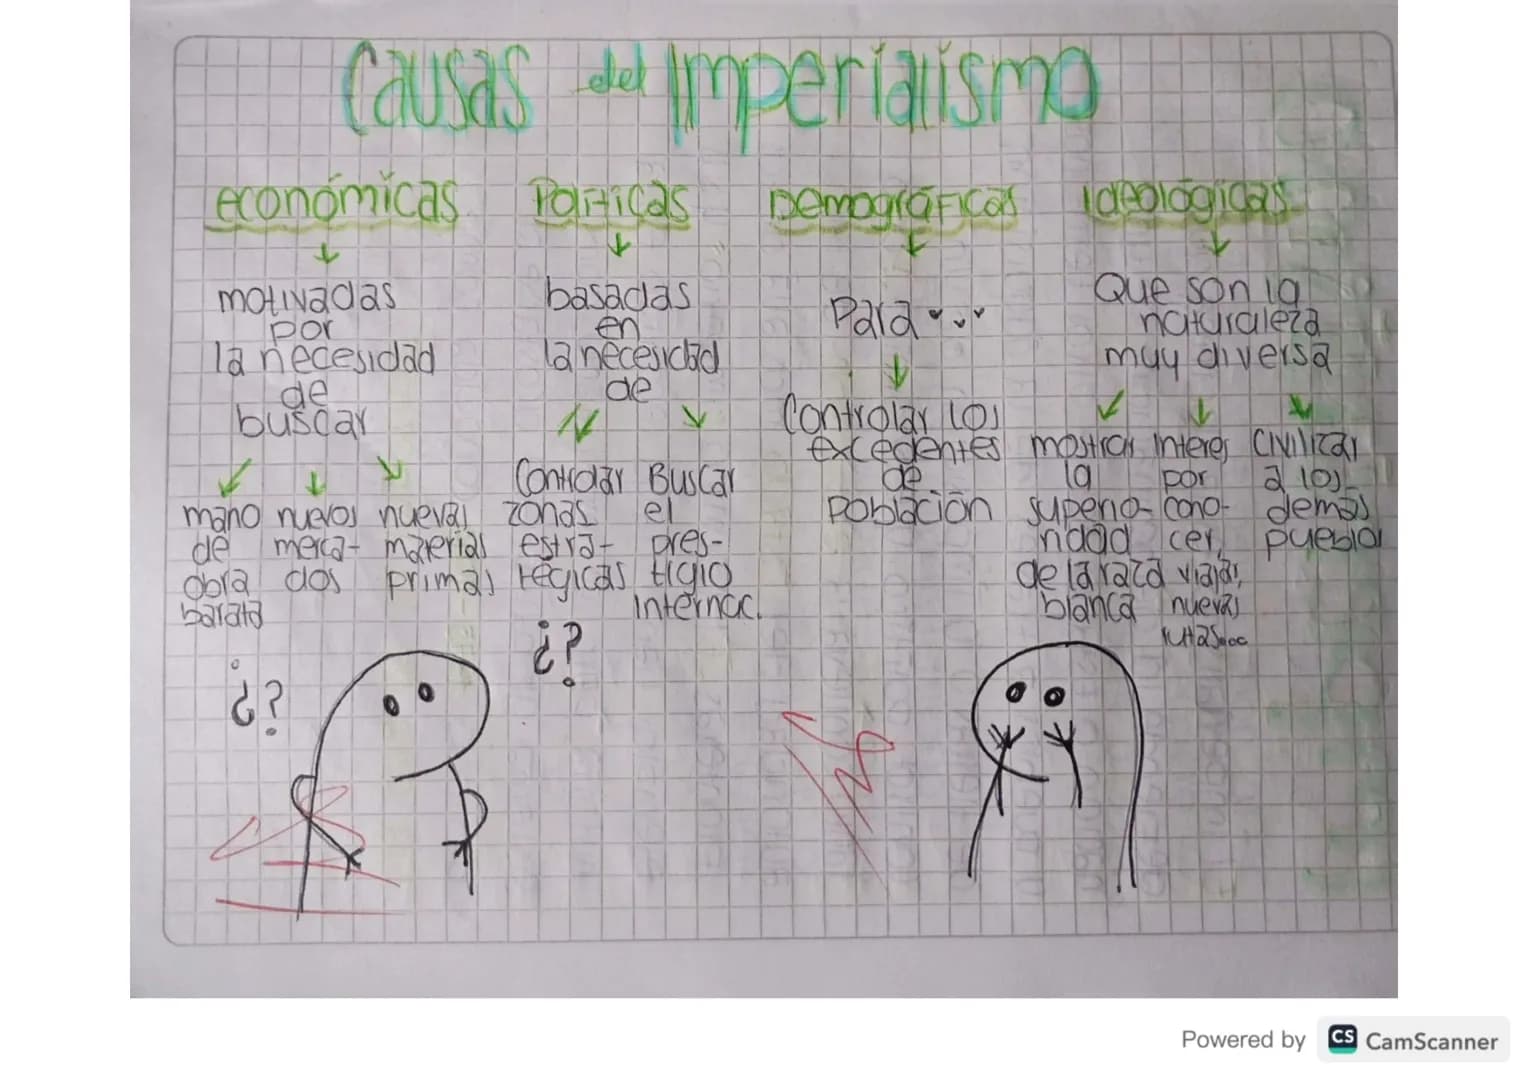 Causas del Imperialismo
económicas
motivadas
por
la necesidad
de
buscar
mano
de
obra
barata
nuevos
merca-
dos
nuevas
materias
primas
Políticas
basadas
en
la necesidad
de
Controlar
zonas
estra-
tégicas
Buscar
el
pres-
tigio
internac.
Demográficas
Para...
Controlar los
excedentes
de
Población
Ideológicas
Que son la
naturaleza
muy diversa
mostrar
la
superio-
ridad
de la raza
blanca
interes
por
cono-
cer,
viajar,
nuevas
rutas...
Civilizar
a los
demás
pueblos
¿?
¿?
Powered by CS CamScanner